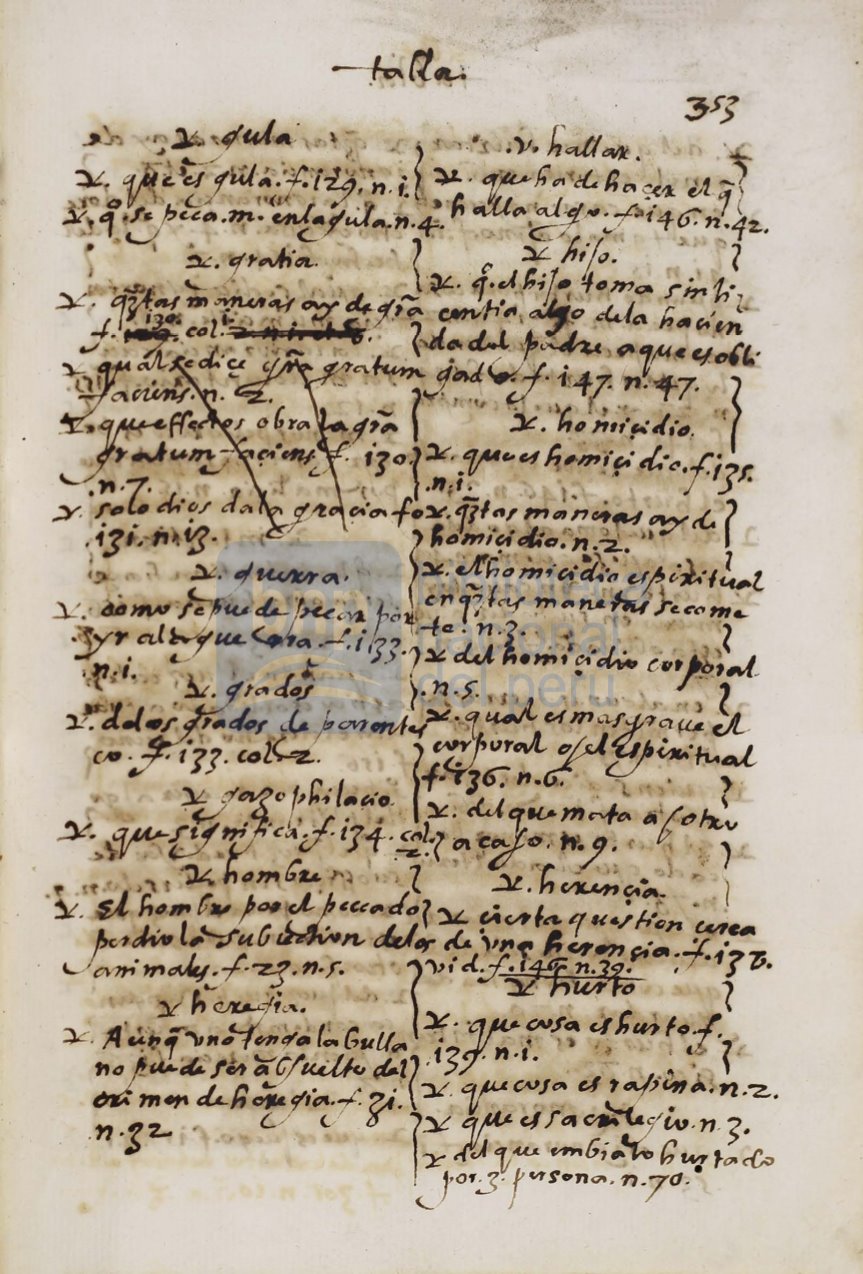 tabla.
353
v. gula
v. que es gula. f. 129. n. i.
v. qº. se peca. m. en la gula. n. 4.
v. gratia.
v. qtas maneras ay de gra
f. 130. col.
v. qual se dice gra gratum
faciens. n. 2.
v. que effectos obra la gra
gratum faciens f. 130
n. 7.
v. solo dios da la gracia fo
131. n. 13.
v. guerra.
v. como se puede pecar por
yr a la guerra. f. 133.
n. i.
v. grados
v. de los grados de parentes
co. f. 133. col. 2.
v. gazophilacio
v. que significa. f. 134. col.
2.
v. hombre
v. El hombre por el peccado
perdio la subiection de los
animales. f. 23. n. 5.
v heregia.
v. Aunq̃ vno tenga la bulla
no puede ser absuelto del
crimen de heregia. f. 31.
n. 32
.v. hallar.
v. que ha de hacer el q̃
halla algo. f. 146. n. 42.
v. hijo.
v. qº. el hijo toma sin li
centia algo dela hacien
da del padre a que es obli
gado. f. 147. n. 47.
v. homicidio.
v. que es homicidio. f. 135.
n. i.
v. qtas maneras ay de
homicidio. n. 2.
v. el homicidio espiritual
en qtas maneras se come
te. n. 3.
v. del homicidio corporal
n. 5.
v. qual es mas grave el
corporal o el espiritual
f. 136. n. 6.
v. del que mata a otro
acaso. n. 9.
v. herencia.
v. cierta question cerca
de vna herencia. f. 138.
vid. f. 146. n. 39.
v. hurto
v. que cosa es hurto. f.
139. n. i.
v. que cosa es rapina. n. 2.
v. que es sacrilegio. n. 3.
v. del que embia lo hurtado
por. 3. persona. n. 70.